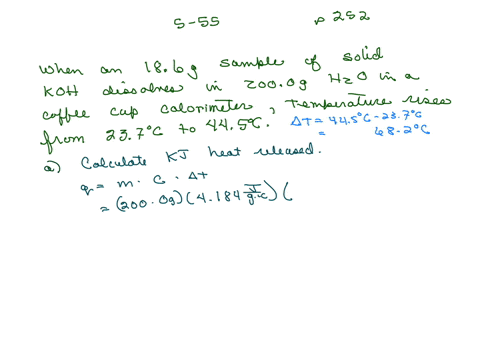 5-55 p 252
When an 18.6g sample of solid
KOH dissolves in 200.0g H2O in a
coffee cup calorimeter, temperature rises
from 23.7°C to 44.5°C. ΔT = 44.5°C - 23.7°C
= 68.2°C
a) Calculate KJ heat released.
q = m · C · Δt
= (200.0g)(4.184 J/g·°C)(